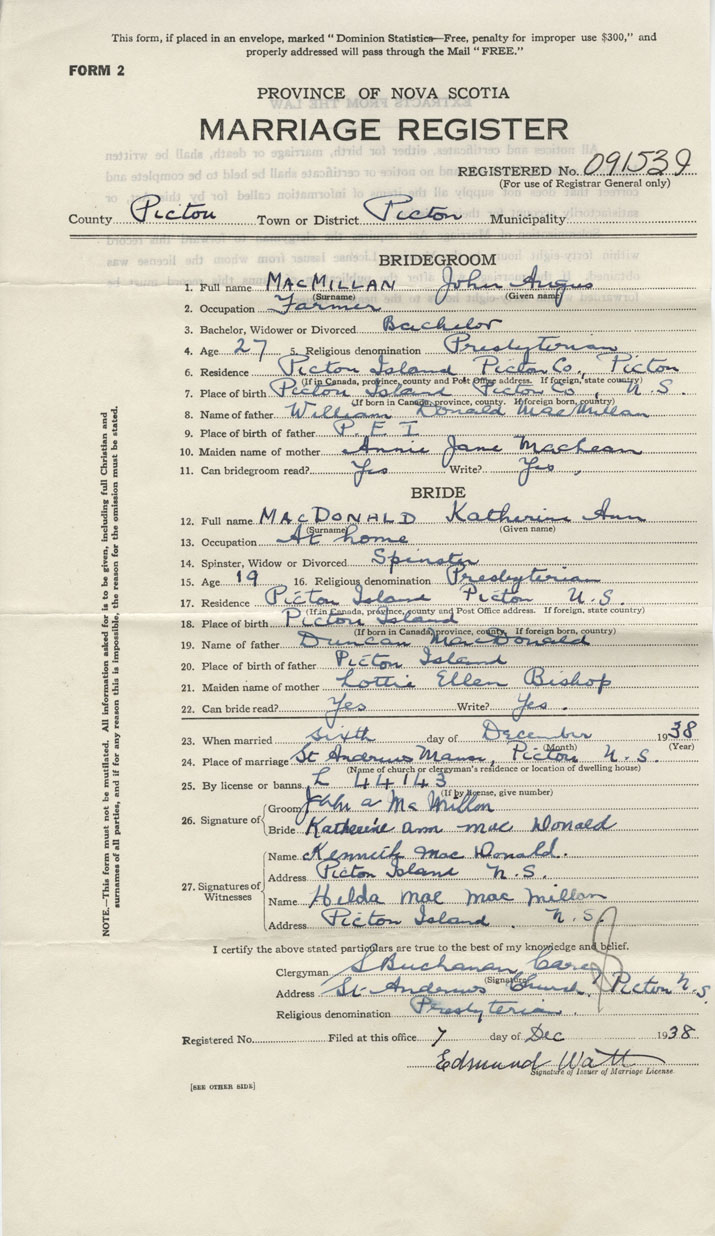 This form, if placed in an envelope, marked "Dominion Statistics—Free, penalty for improper use $300," and
properly addressed will pass through the Mail "FREE."
FORM 2
PROVINCE OF NOVA SCOTIA
MARRIAGE REGISTER
REGISTERED No. 091539
(For use of Registrar General only)
County Pictou Town or District Pictou Municipality
BRIDEGROOM
1. Full name MACMILLAN John Angus
(Surname) (Given name)
2. Occupation Farmer
3. Bachelor, Widower or Divorced Bachelor
4. Age 27 5. Religious denomination Presbyterian
6. Residence Pictou Island Pictou Co., Pictou
(If in Canada, province, county and Post Office address. If foreign, state country)
7. Place of birth Pictou Island Pictou Co, N.S.
(If born in Canada, province, county. If foreign born, country)
8. Name of father William Donald MacMillan
9. Place of birth of father P.E.I
10. Maiden name of mother Annie Jane MacLean
11. Can bridegroom read? Yes Write? Yes.
BRIDE
12. Full name MACDONALD Katherine Ann
(Surname) (Given name)
13. Occupation At home
14. Spinster, Widow or Divorced Spinster
15. Age 19 16. Religious denomination Presbyterian
17. Residence Pictou Island Pictou N.S.
(If in Canada, province, county and Post Office address. If foreign, state country)
18. Place of birth Pictou Island
(If born in Canada, province, county. If foreign born, country)
19. Name of father Duncan MacDonald
20. Place of birth of father Pictou Island
21. Maiden name of mother Lottie Ellen Bishop
22. Can bride read? Yes Write? Yes.
23. When married Sixth day of December 1938
(Month) (Year)
24. Place of marriage St Andrews Manse, Pictou N.S.
(Name of church or clergyman's residence or location of dwelling house)
25. By license or banns L 44143
(If by license, give number)
26. Signature of
Groom John A McMillan
Bride Katherine Ann Mac Donald
27. Signatures of Witnesses
Name Kenneth Mac Donald.
Address Pictou Island N.S.
Name Hilda Mae Mac Millan
Address Pictou Island. N.S.
I certify the above stated particulars are true to the best of my knowledge and belief.
Clergyman S Buchanan Carey
(Signature)
Address St Andrews Church, Pictou N.S.
Religious denomination Presbyterian.
Registered No. Filed at this office 7 day of Dec 1938
Edmund Watt
Signature of Issuer of Marriage License.
[SEE OTHER SIDE]
NOTE.—This form must not be mutilated. All information asked for is to be given, including full Christian and
surnames of all parties, and if for any reason this is impossible, the reason for the omission must be stated.